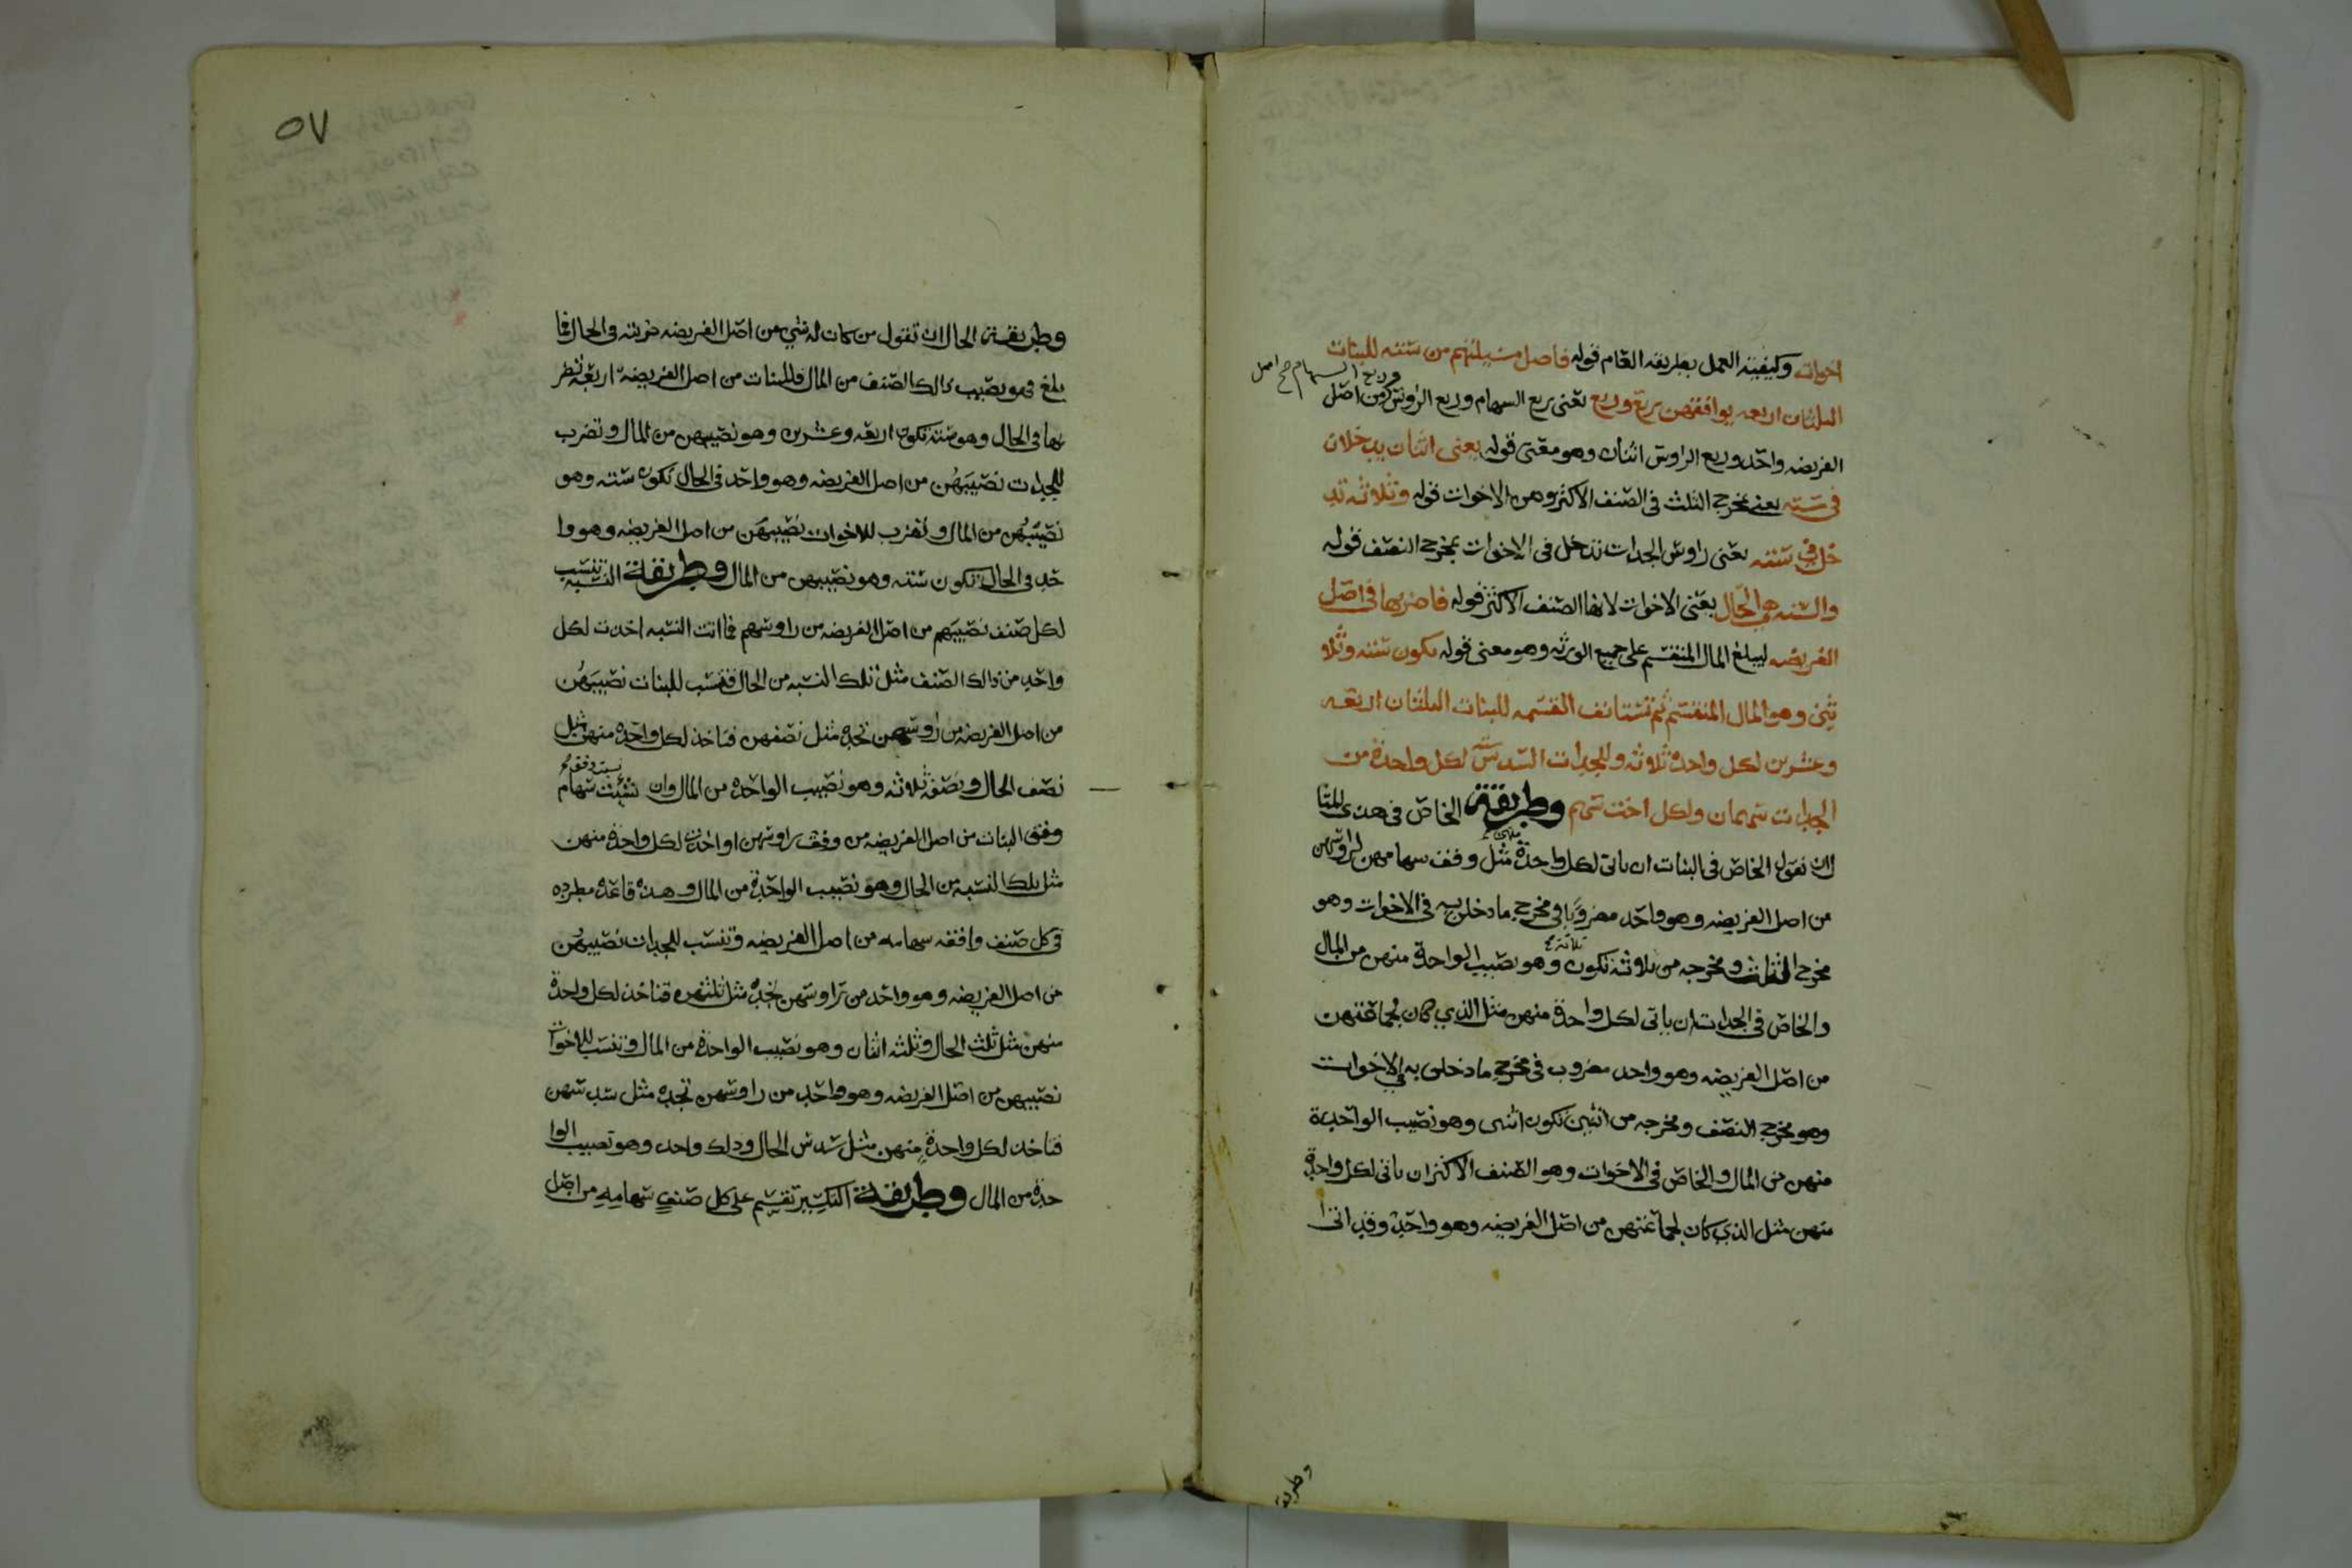 اخوات وكيفيته العمل بطريقه العام قوله فاصل مسيلتهم من سته للبنات
وربع السهام صح اصل
الثلثان اربعه يوافقهن بربع وربع يعنى ربع السهام وربع الراوس من اصل
الفريضه واحد وربع الراوس اثنان وهو معنى قوله يعنى اثنان يدخلان
في سته يعني بمخرج الثلث في الصنف الاكثر وهن الاخوات قوله وثلاثه تد
خل في سته يعنى راوس الجدات تدخل في الاخوات بمخرج النصف قوله
والسته هي الحال يعنى الاخوات لانها الصنف الاكثر قوله فاضربها في اصل
الفريضه ليبلغ المال المنقسم على جميع الورثه وهو معنى قوله يكون سته وثلا
ثين وهو المال المنقسم ثم تستانف القسمه للبنات الثلثان اربعه
وعشرين لكل واحدة ثلاثه وللجدات السدس سته لكل واحدة من
الجدات سهمان ولكل اخت سهم وطريقة الخاص في هذي المثا
ل ان تقول الخاص في البنات ان ياتي لكل واحدة منهن مثل وفق سهامهن لراوسهن
من اصل الفريضه وهو واحد مضروبا في مخرج ما دخلن به في الاخوات وهو
مخرج الثلث ومخرجه من ثلاثه تكون ثلاثه وهو نصيب الواحدة منهن من المال
والخاص في الجدات ان ياتى لكل واحدة منهن مثل الذي كان لجماعتهن
من اصل الفريضه وهو واحد مضروب في مخرج ما دخلن به في الاخوات
وهو مخرج النصف ومخرجه من اثنين تكون اثنين وهو نصيب الواحدة
منهن من المال والخاص في الاخوات وهو الصنف الاكثر ان ياتى لكل واحدة
منهن مثل الذي كان لجماعتهن من اصل الفريضه وهو واحد وقد اتا
وطريقة
٥٧
وطريقة الحال ان تقول من كان له شي من اصل الفريضه ضربته في الحال فما
بلغ فهو نصيب ذالك الصنف من المال فللبنات من اصل الفريضه اربعه تضر
بها في الحال وهو سته تكون اربعه وعشرين وهو نصيبهن من المال وتضرب
للجدات نصيبهن من اصل الفريضه وهو واحد في الحال تكون سته وهو
نصيبهن من المال وتضرب للاخوات نصيبهن من اصل الفريضه وهو وا
حد في الحال تكون سته وهو نصيبهن من المال وطريقة النسبه تنسب
لكل صنف نصيبهم من اصل الفريضه من راوسهم فما اتت النسبه اخذت لكل
واحد من ذالك الصنف مثل تلك النسبه من الحال فتنسب للبنات نصيبهن
من اصل الفريضه من راوسهن تجده مثل نصفهن فتاخذ لكل واحده منهن مثل
نصف الحال ونصفه ثلاثه وهو نصيب الواحده من المال وان شئت سهام
وفق البنات من اصل الفريضه من وفق راوسهن او اخذت لكل واحدة منهن
مثل تلك النسبه من الحال وهو نصيب الواحدة من المال وهذه قاعده مطرده
في كل صنف وافقه سهامه من اصل الفريضه وتنسب للجدات نصيبهن
من اصل الفريضه وهو واحد من راوسهن تجده مثل ثلثهن فتاخذ لكل واحدة
منهن مثل ثلث الحال وثلثه اثنان وهو نصيب الواحدة من المال وتنسب للاخوات
نصيبهن من اصل الفريضه وهو واحد من راوسهن تجده مثل سدسهن
فتاخذ لكل واحدة منهن مثل سدس الحال وذلك واحد وهو نصيب الوا
حدة من المال وطريقة التكسير تقسم على كل صنف سهامه من اصل